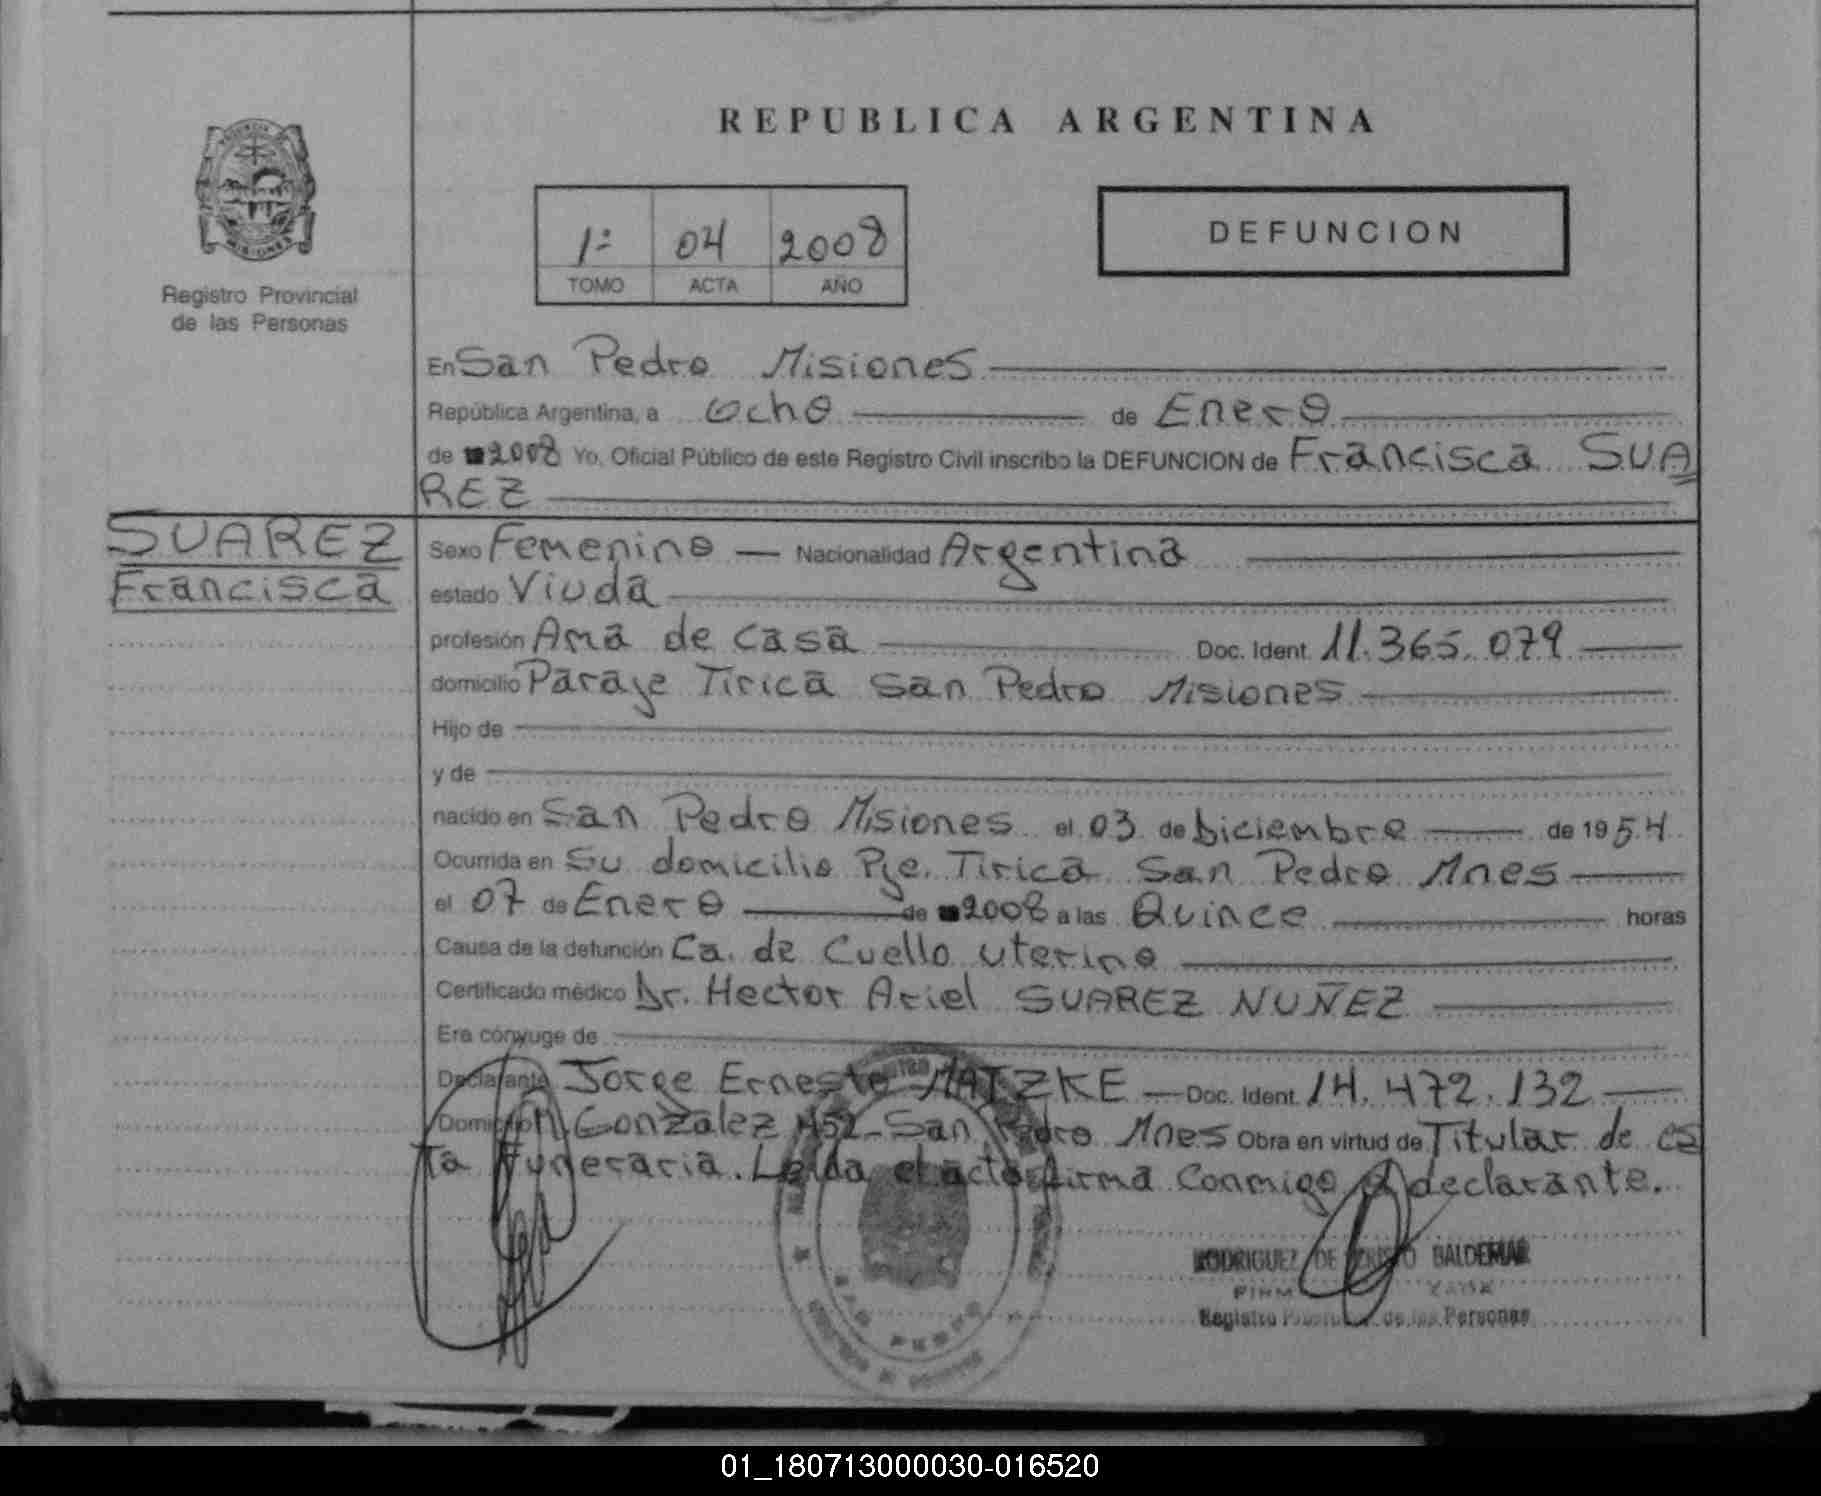 REPUBLICA ARGENTINA
MISIONES
Registro Provincial
de las Personas
1º 04 2008
TOMO ACTA AÑO
DEFUNCION
En San Pedro Misiones
República Argentina, a Ocho de Enero
de 2008 Yo, Oficial Público de este Registro Civil inscribo la DEFUNCION de Francisca SUA
REZ
SUAREZ
Francisca
Sexo Femenino Nacionalidad Argentina
estado Viuda
profesión Ama de Casa Doc. Ident. 11.365.079
domicilio Paraje Tirica San Pedro Misiones
Hijo de
y de
nacido en San Pedro Misiones el 03 de Diciembre de 1954
Ocurrida en Su domicilio Pje. Tirica San Pedro Mnes
el 07 de Enero de 2008 a las Quince horas
Causa de la defunción Ca. de Cuello uterino
Certificado médico Dr. Hector Ariel SUAREZ NUÑEZ
Era cónyuge de
Declarante Jorge Ernesto MATZKE Doc. Ident. 14.472.132
Domicilio Gonzalez 452 - San Pedro Mnes Obra en virtud de Titular de es
ta Funeraria. Leída el acta firma Conmigo el declarante.
RODRIGUEZ DE BALDEMAR
Registro de las Personas
SAN PEDRO
01_180713000030-016520